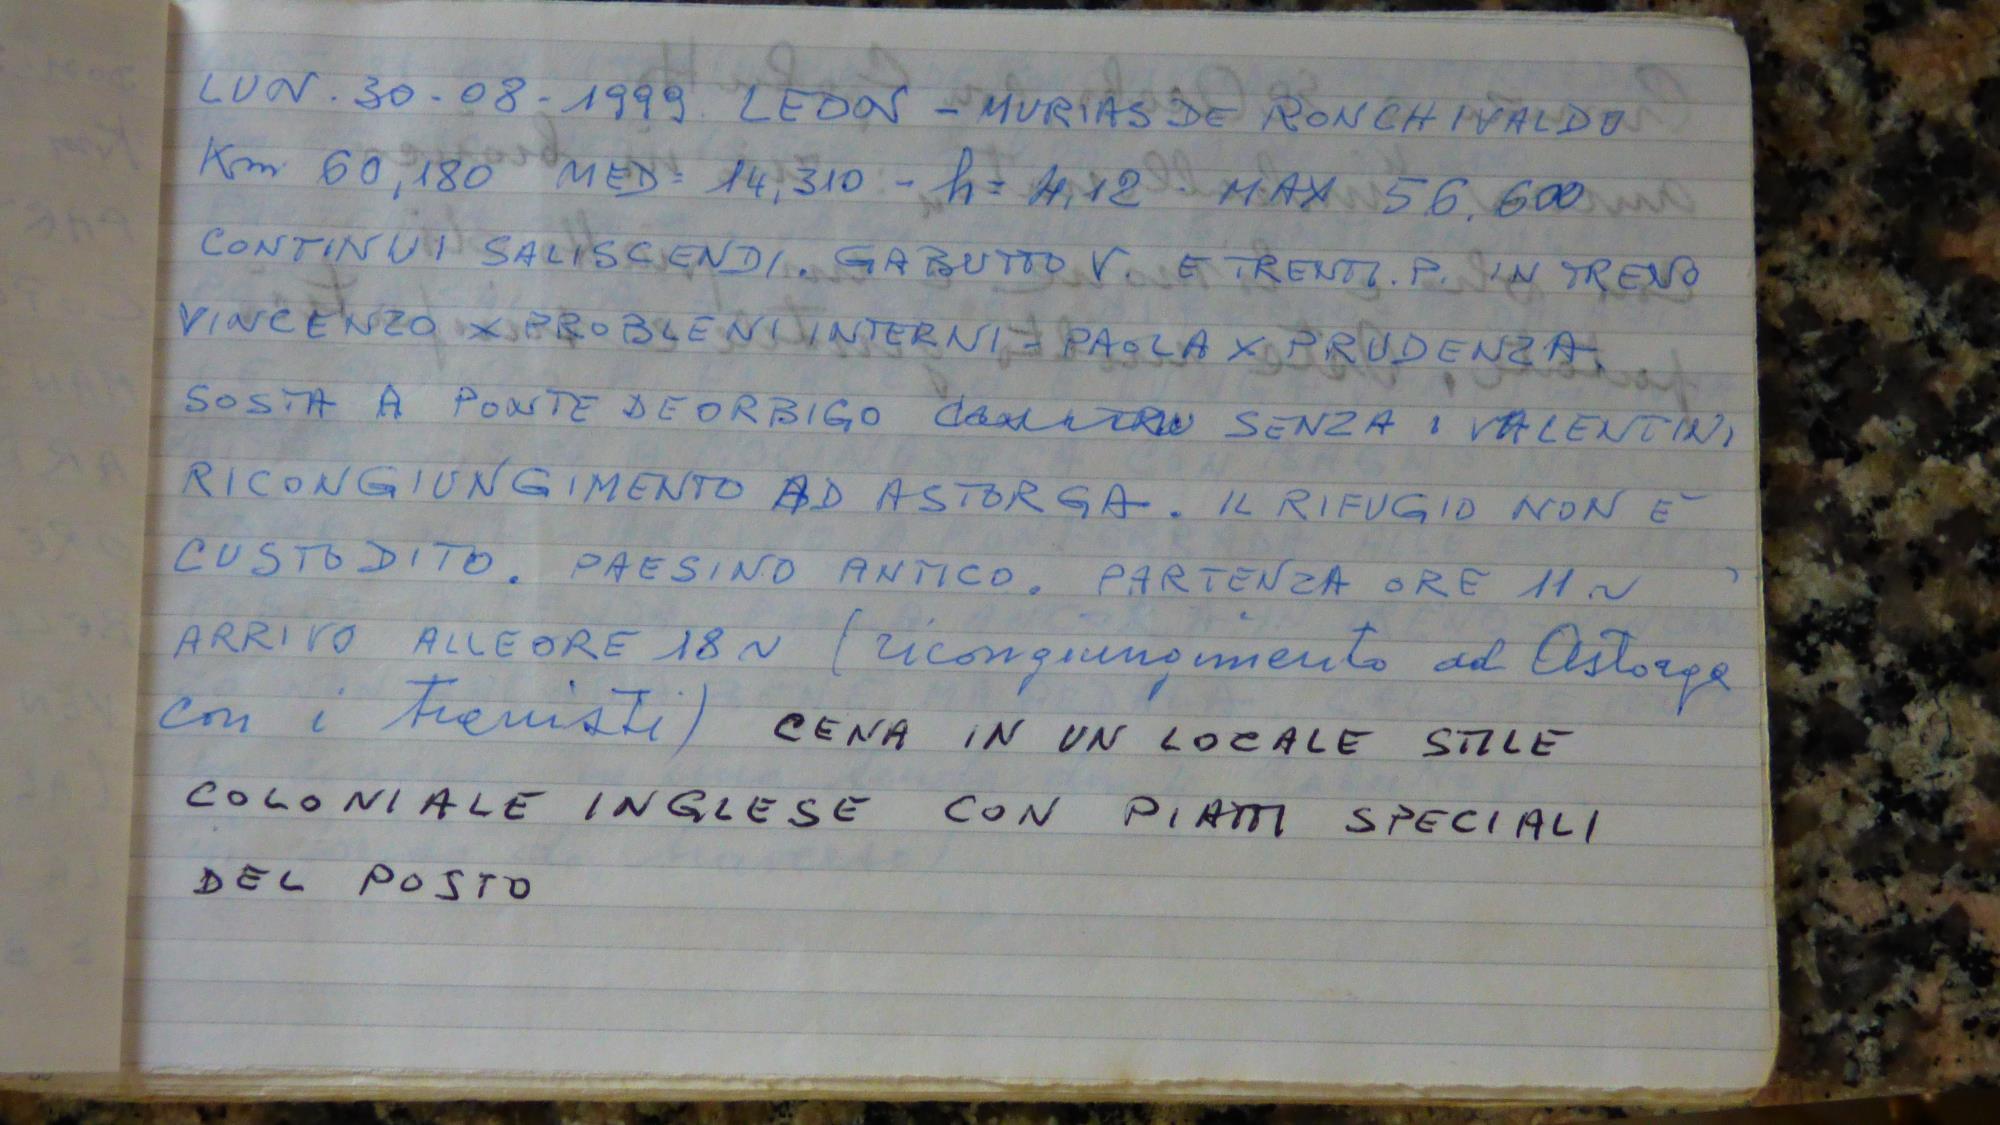 LUN. 30-08-1999. LEON - MURIAS DE RONCHIVALDO
Km 60,180 MED= 14,310 - h= 4,12 - MAX 56.600
CONTINUI SALISCENDI. GABUTTO V. E TRENTI. P. IN TRENO
VINCENZO x PROBLENI INTERNI = PAOLA x PRUDENZA
SOSTA A PONTE DE ORBIGO SENZA I VALENTINI
RICONGIUNGIMENTO AD ASTORGA. IL RIFUGIO NON È
CUSTODITO. PAESINO ANTICO. PARTENZA ORE 11 ~
ARRIVO ALLE ORE 18 ~ (ricongiungimento ad Astorga
con i trenisti) CENA IN UN LOCALE STILE
COLONIALE INGLESE CON PIATTI SPECIALI
DEL POSTO